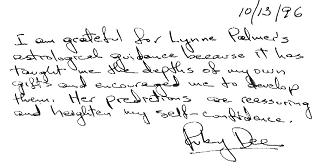 10/13/96
I am grateful for Lynne Palmer's
astrological guidance because it has
taught me the depths of my own
gifts and encouraged me to develop
them. Her predictions are reassuring
and heighten my self-confidence.
Ruby Dee